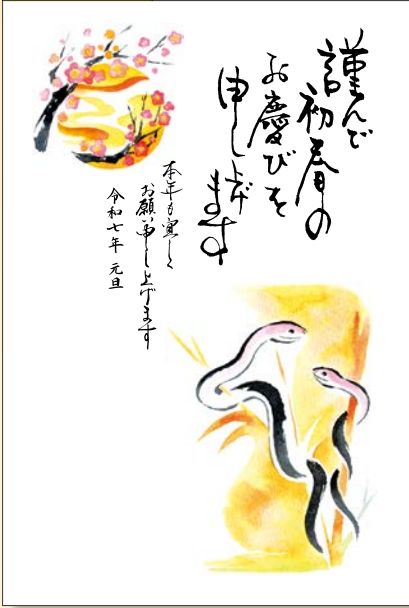 謹んで
初春の
お慶びを
申し上げ
ます
本年も宜しく
お願い申し上げます
令和七年 元旦